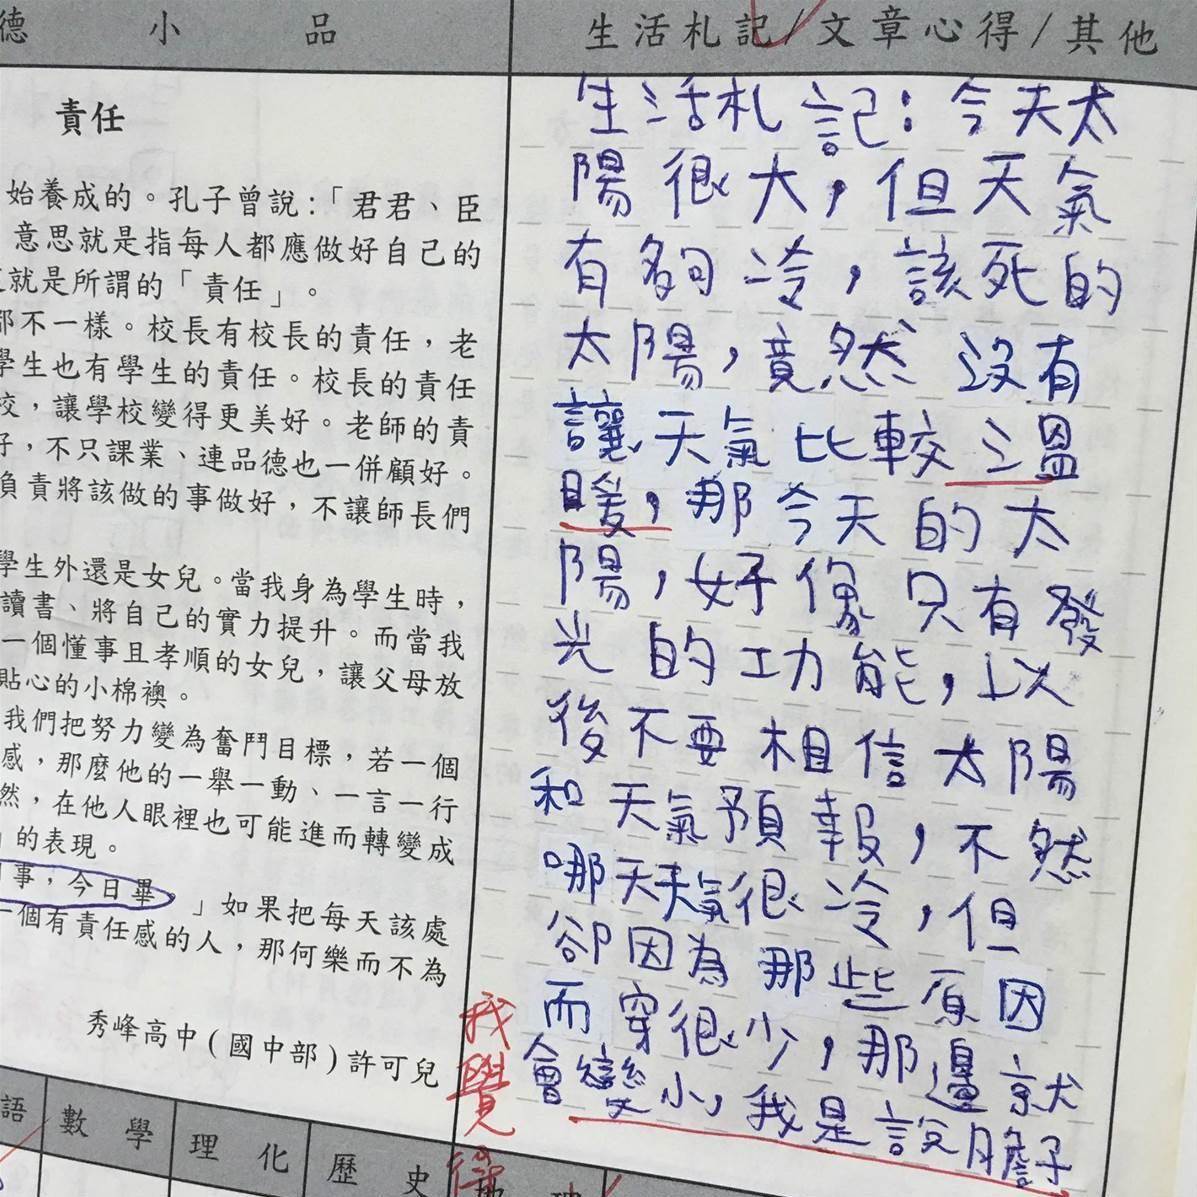 德小品
生活札記/文章心得/其他
責任
始養成的。孔子曾說:「君君、臣
意思就是指每人都應做好自己的
就是所謂的「責任」。
都不一樣。校長有校長的責任，老
學生也有學生的責任。校長的責任
校，讓學校變得更美好。老師的責
好，不只課業、連品德也一併顧好。
負責將該做的事做好，不讓師長們
學生外還是女兒。當我身為學生時，
讀書、將自己的實力提升。而當我
一個懂事且孝順的女兒，讓父母放
貼心的小棉襖。
我們把努力變為奮鬥目標，若一個
感，那麼他的一舉一動、一言一行
然，在他人眼裡也可能進而轉變成
」的表現。
事，今日畢。」如果把每天該處
一個有責任感的人，那何樂而不為
秀峰高中(國中部)許可兒
生活札記：今天太
陽很大，但天氣
有夠冷，該死的
太陽，竟然沒有
讓天氣比較溫
暖，那今天的太
陽，好像只有發
光的功能，以
後不要相信太陽
和天氣預報，不然
哪天天氣很冷，但
卻因為那些原因
而穿很少，那邊就
會變小，我是說膽子
我覺得
語 數學 理化 歷史